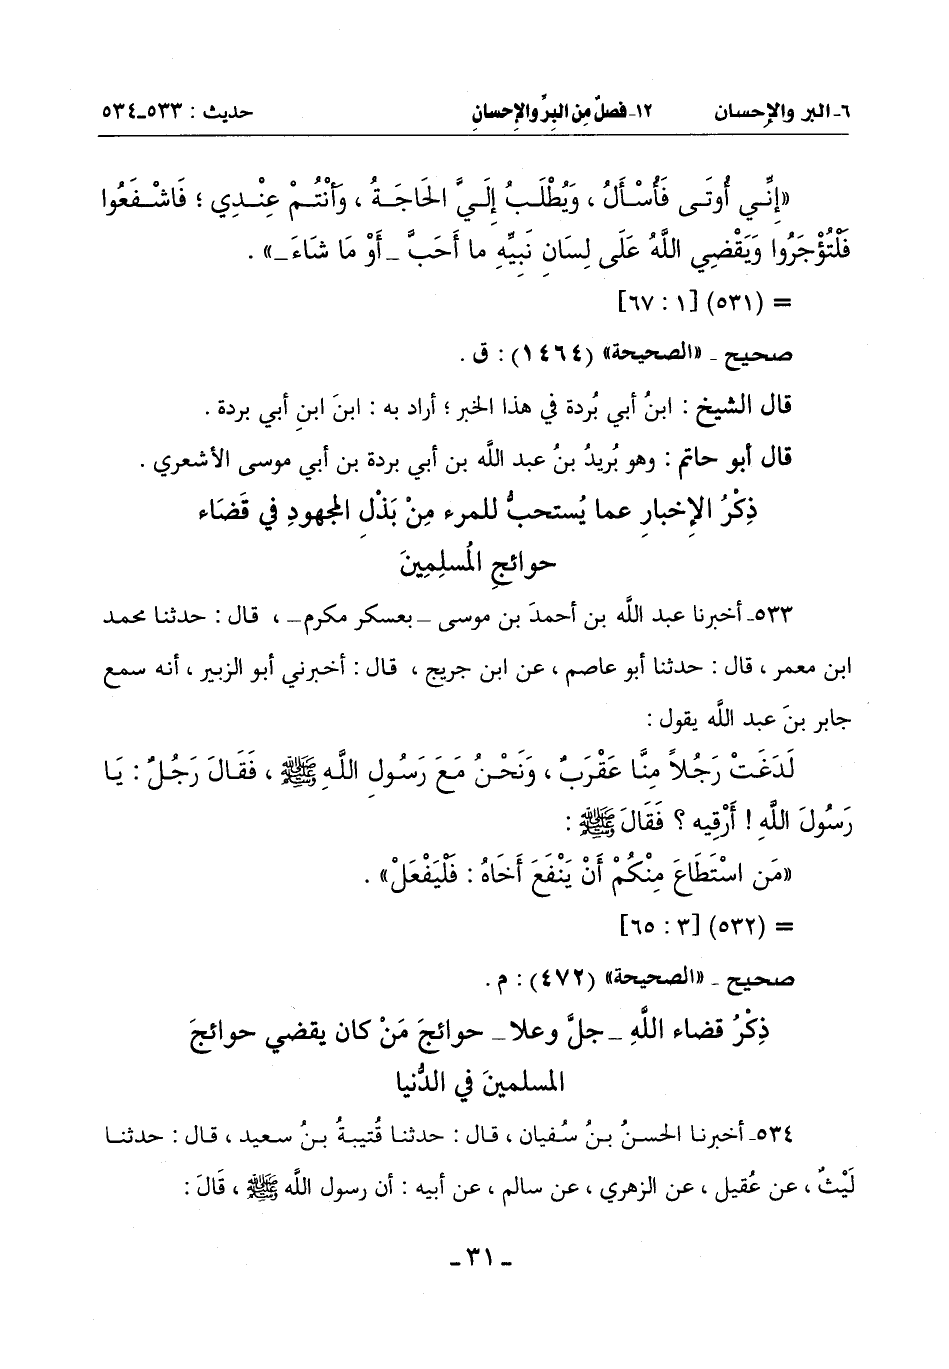 ٦ـ البر والإحسان ١٢ـ فصلٌ مِن البِرِّ والإحسانِ حديث : ٥٣٣ـ٥٣٤
«إِنِّي أُوتَى فَأُسْأَلُ ، وَيُطْلَبُ إِلَيَّ الحَاجَةُ ، وَأَنْتُمْ عِنْدِي ؛ فَاشْفَعُوا
فَلْتُؤْجَرُوا وَيَقْضِي اللَّهُ عَلَى لِسَانِ نَبِيِّهِ ما أَحَبَّ ـ أَوْ مَا شَاءَ ـ» .
= (٥٣١) [١ : ٦٧]
صحيح ـ «الصحيحة» (١٤٦٤) : ق .
قال الشيخ : ابنُ أبي بُردة في هذا الخبر ؛ أراد به : ابنَ ابنِ أبي بردة .
قال أبو حاتم : وهو بُريدُ بنُ عبد اللَّه بن أبي بردة بن أبي موسى الأشعري .
ذِكْرُ الإخبارِ عما يُستحبُّ للمرء مِنْ بَذْلِ المجهودِ في قَضَاء
حوائجِ المُسلِمِينَ
٥٣٣ـ أخبرنا عبد اللَّه بن أحمدَ بن موسى ـ بعسكر مكرم ـ ، قال : حدثنا محمد
ابن معمر ، قال : حدثنا أبو عاصم ، عن ابن جريج ، قال : أخبرني أبو الزبير ، أنه سمع
جابر بنَ عبد اللَّه يقول :
لَدَغَتْ رَجُلاً مِنَّا عَقْرَبٌ ، وَنَحْنُ مَعَ رَسُولِ اللَّهِ ﷺ ، فَقَالَ رَجُلٌ : يَا
رَسُولَ اللَّهِ ! أَرْقِيه ؟ فَقَالَ ﷺ :
«مَن اسْتَطَاعَ مِنْكُمْ أَنْ يَنْفَعَ أَخَاهُ : فَلْيَفْعَلْ» .
= (٥٣٢) [٣ : ٦٥]
صحيح ـ «الصحيحة» (٤٧٢) : م .
ذِكْرُ قضاء اللَّهِ ـ جلَّ وعلا ـ حوائجَ مَنْ كان يقضي حوائجَ
المسلمينَ في الدُّنيا
٥٣٤ـ أخبرنا الحسنُ بنُ سُفيان ، قال : حدثنا قُتيبةُ بنُ سعيد ، قال : حدثنا
لَيْثٌ ، عن عُقيل ، عن الزهري ، عن سالم ، عن أبيه : أن رسول اللَّه ﷺ ، قَالَ :
ـ ٣١ ـ